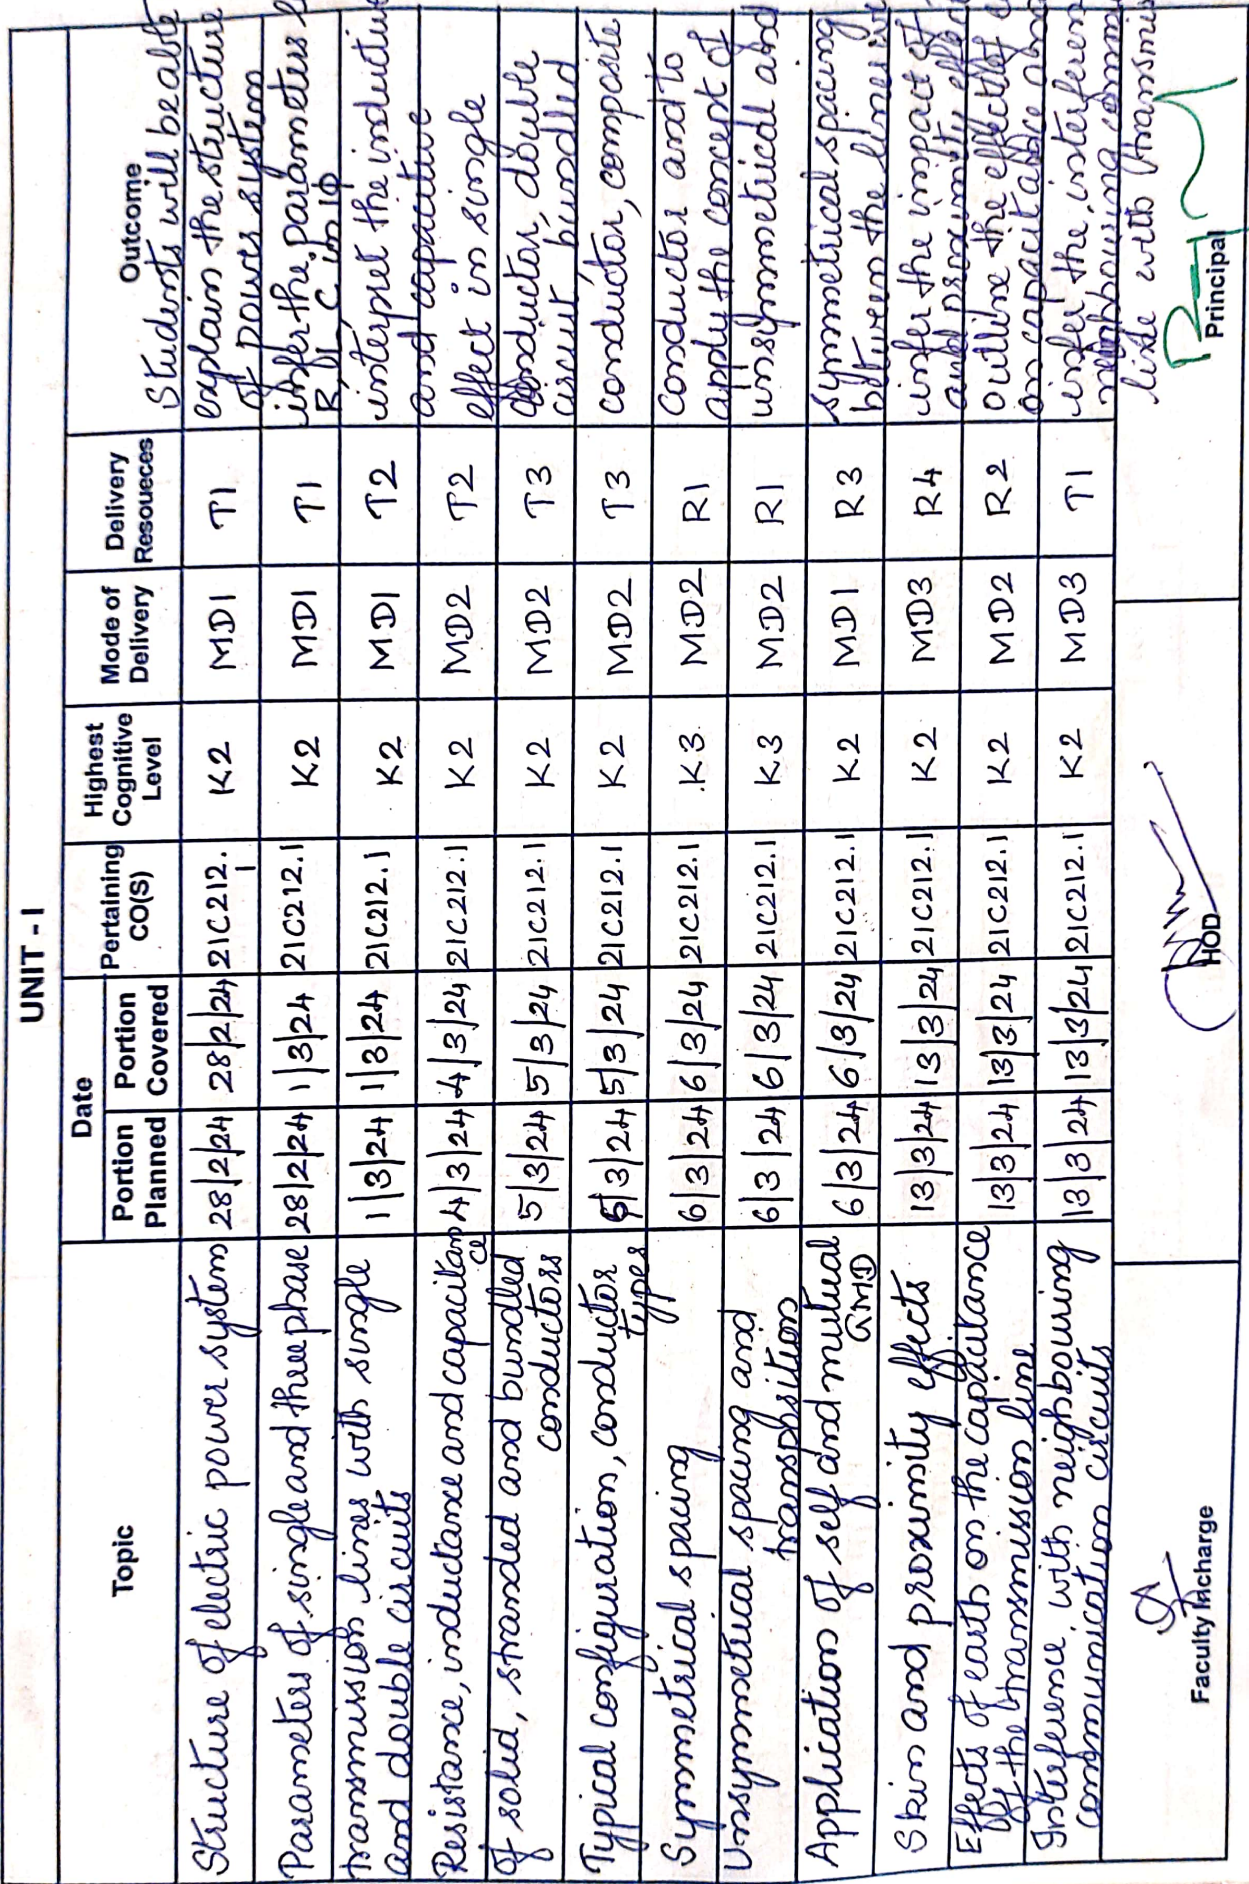 UNIT - I
Topic
Date
Portion Planned
Portion Covered
Pertaining CO(S)
Highest Cognitive Level
Mode of Delivery
Delivery Resoueces
Outcome
Students will be able
Structure of electric power system 28/2/24 28/2/24 21C212.1 K2 MD1 T1 explain the structure of power system
Parameters of single and three phase 28/2/24 1/3/24 21C212.1 K2 MD1 T1 infer the parameters R, L, C in 1φ
transmission lines with single and double circuits 1/3/24 1/3/24 21C212.1 K2 MD1 T2 interpret the inductive and capacitive
Resistance, inductance and capacitance 4/3/24 4/3/24 21C212.1 K2 MD2 T2 effect in single
of solid, stranded and bundled conductors 5/3/24 5/3/24 21C212.1 K2 MD2 T3 conductor, double circuit bundled
Typical configuration, conductor types 5/3/24 5/3/24 21C212.1 K2 MD2 T3 conductor, composite
Symmetrical spacing 6/3/24 6/3/24 21C212.1 K3 MD2 R1 conductor and to apply the concept of
Unsymmetrical spacing and transposition 6/3/24 6/3/24 21C212.1 K3 MD2 R1 unsymmetrical and
Application of self and mutual GMD 6/3/24 6/3/24 21C212.1 K2 MD1 R3 symmetrical spacing between the lines
Skin and proximity effects 13/3/24 13/3/24 21C212.1 K2 MD3 R4 infer the impact of and proximity effect
Effects of earth on the capacitance of the transmission line 13/3/24 13/3/24 21C212.1 K2 MD2 R2 outline the effect of on capacitance and
Interference with neighbouring communication circuits 13/3/24 13/3/24 21C212.1 K2 MD3 T1 infer the interferen neighbouring commu
line with transmis
Faculty Incharge
HOD
Principal